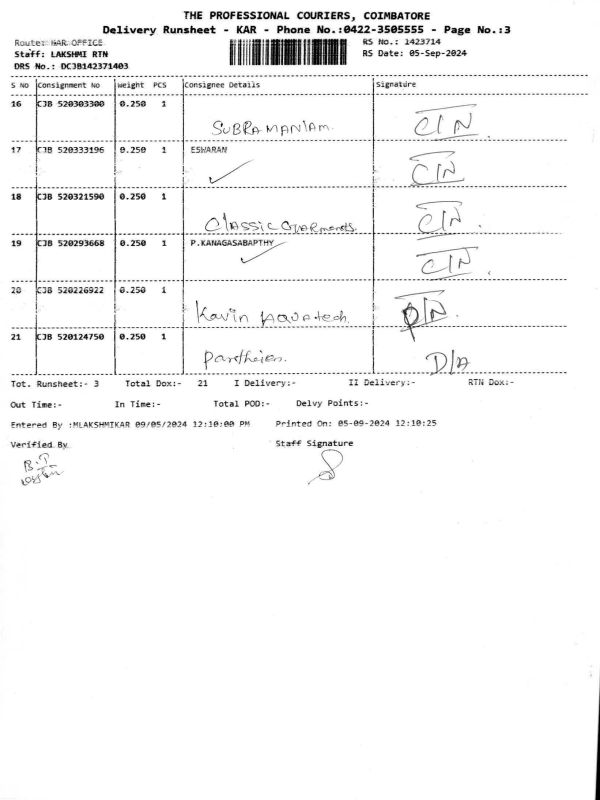 THE PROFESSIONAL COURIERS, COIMBATORE
Delivery Runsheet - KAR - Phone No.:0422-3505555 - Page No.:3
Route: KAR OFFICE
RS No.: 1423714
Staff: LAKSHMI RTN
RS Date: 05-Sep-2024
DRS No.: DCJB142371403
S No Consignment No Weight PCS Consignee Details Signature
16 CJB 520303300 0.250 1
SUBRAMANIAM. CIN
17 CJB 520333196 0.250 1 ESWARAN
CIN
18 CJB 520321590 0.250 1
Classic Garments. CIN
19 CJB 520293668 0.250 1 P.KANAGASABAPTHY
CIN
20 CJB 520226922 0.250 1
Kavin Aquatech.
21 CJB 520124750 0.250 1
D/A
Tot. Runsheet:- 3 Total Dox:- 21 I Delivery:- II Delivery:- RTN Dox:-
Out Time:- In Time:- Total POD:- Delvy Points:-
Entered By :MLAKSHMIKAR 09/05/2024 12:10:00 PM Printed On: 05-09-2024 12:10:25
Verified By Staff Signature